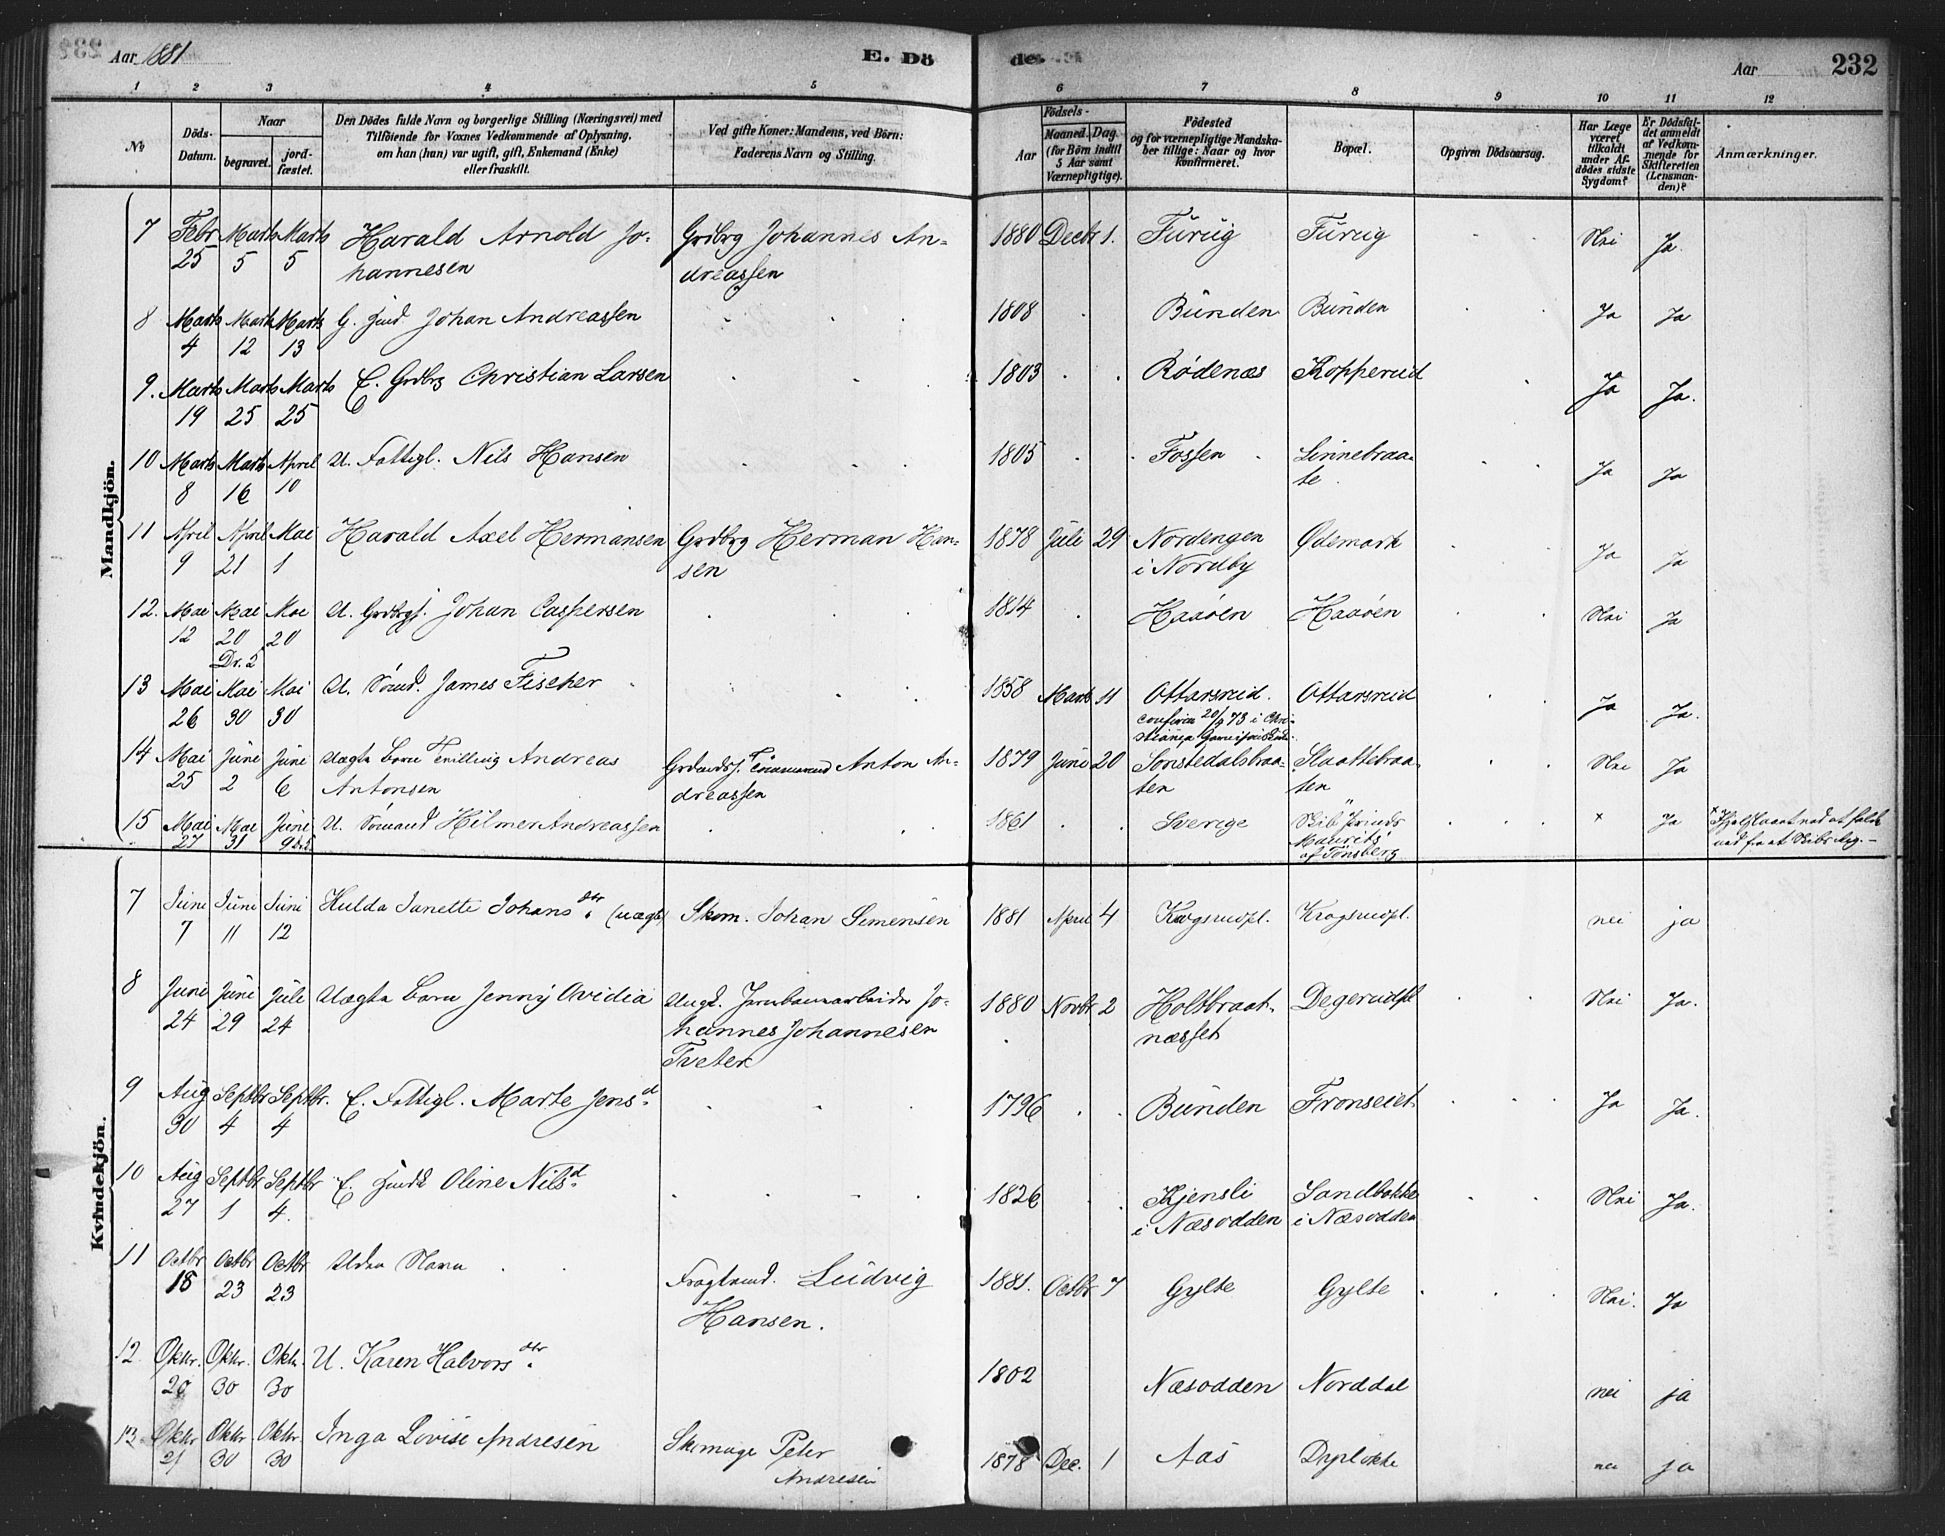 Aar 1881
E. Dö
de.
Aar
232
1 2 3 4 5 6 7 8 9 10 11 12
No
Döds-Datum.
Naar
begravet.
jordfæstet.
Den Dödes fulde Navn og borgerlige Stilling (Næringsvei) med
Tilföiende for Voxnes Vedkommende af Oplysning,
om han (hun) var ugift, gift, Enkemand (Enke)
eller fraskilt.
Ved gifte Koner: Mandens, ved Börn:
Faderens Navn og Stilling.
Födsels-
Aar
Maaned. Dag.
(for Börn indtil
5 Aar samt
Værnepligtige).
Födested
og for værnepligtige Mandska-
ber tillige: Naar og hvor
konfirmeret.
Bopæl.
Opgiven Dödsaarsag.
Har Læge
været
tilkaldt
under Af-
dödes sidste
Sygdom?
Er Dödsfal-
det anmeldt
af Vedkom-
mende for
Skifteretten
(Lensman-
den)?
Anmærkninger.
Mandkjön.
7 Febr 25 Marts 5 Marts 5 Harald Arnold Jo-
hannesen Grdbrg Johannes An-
dreassen 1880 Decbr 1. Furug Furug Nei Ja.
8 Marts 4 Marts 12 Marts 13 G. Johan Andreassen 1808 Bunden Bunden Ja Ja
9. Marts 19 Marts 25 Marts 25 E. Grdbrg Christian Larsen 1803 Rødenæs Kopperud Ja Ja.
10 Marts 8 Marts 16 April 10 U. Fattigl. Nils Hansen 1805 Fossen Linnebraa-
te Ja Ja
11 April 9 April 21 Mai 1 Harald Axel Hermansen Grdbrg Herman Han-
sen 1878 Juli 29 Nordengen
i Nordby Ødemark Ja Ja
12. Mai 12 Mai 20 Mai 20 U. Grdbrgs. Johan Caspersen 1814 Haaøen Haaøen Nei Ja
13 Mai 26 Mai 30 Mai 30 U. Sømd. James Fischer 1858 Marts 11 Ottarsrud. Ottarsrud Ja Ja.
14 Mai 25 Juni 2 Juni 6 Uægte Barn Tvilling Andreas
Antonsen Anton An-
dreassen 1879 Juni 20 Sonstedalsbraa-
ten Slaattebraa-
ten Nei Ja
15 Mai 27 Mai 31 Juni 9 U. Sømand Hilmer Andreassen 1861 Sverige Skib "Prinds
Maurits"
af Tønsberg × Ja
Kvindekjön.
7 Juni 7 Juni 11 Juni 12 Hulda Janette Johansdtr (uægte) Skom. Johan Simensen 1881 April 4 Krogsrudpl. Krogsrudpl. nei ja
8 Juni 24 Juni 29 Juli 24 Uægte Barn Jenny Ovidia Ungk. Jernbanearbeider Jo-
hannes Johannesen
Tveter 1880 Novbr 2 Holtbraat-
næsset Degerudpl Nei Ja.
9 Aug 30 Septbr 4 Septbr. 4 E. Fattigl. Marte Jensd. 1796 Bunden Fronseiet Ja Ja.
10 Aug 27 Septbr 1 Septbr 4. E. Oline Nilsd. 1826 Kjensli
i Næsodden Sandbakke
i Næsodden Nei Ja.
11 Octbr 18 Octbr 23 Octbr 23 Uden Navn Ludvig
Hansen. 1881. Octbr 7 Gylte Gylte Nei. Ja
12. Oktr. 20 Oktr. 30 Oktr. 30 U. Karen Halvorsdtr. 1802 Næsodden Norddal nei ja
13 Oktr 21 Oktr 30 Oktr 30 Inga Lovise Andresen Skomager Peter
Andresen 1878 Dec. 1 Aas nei ja